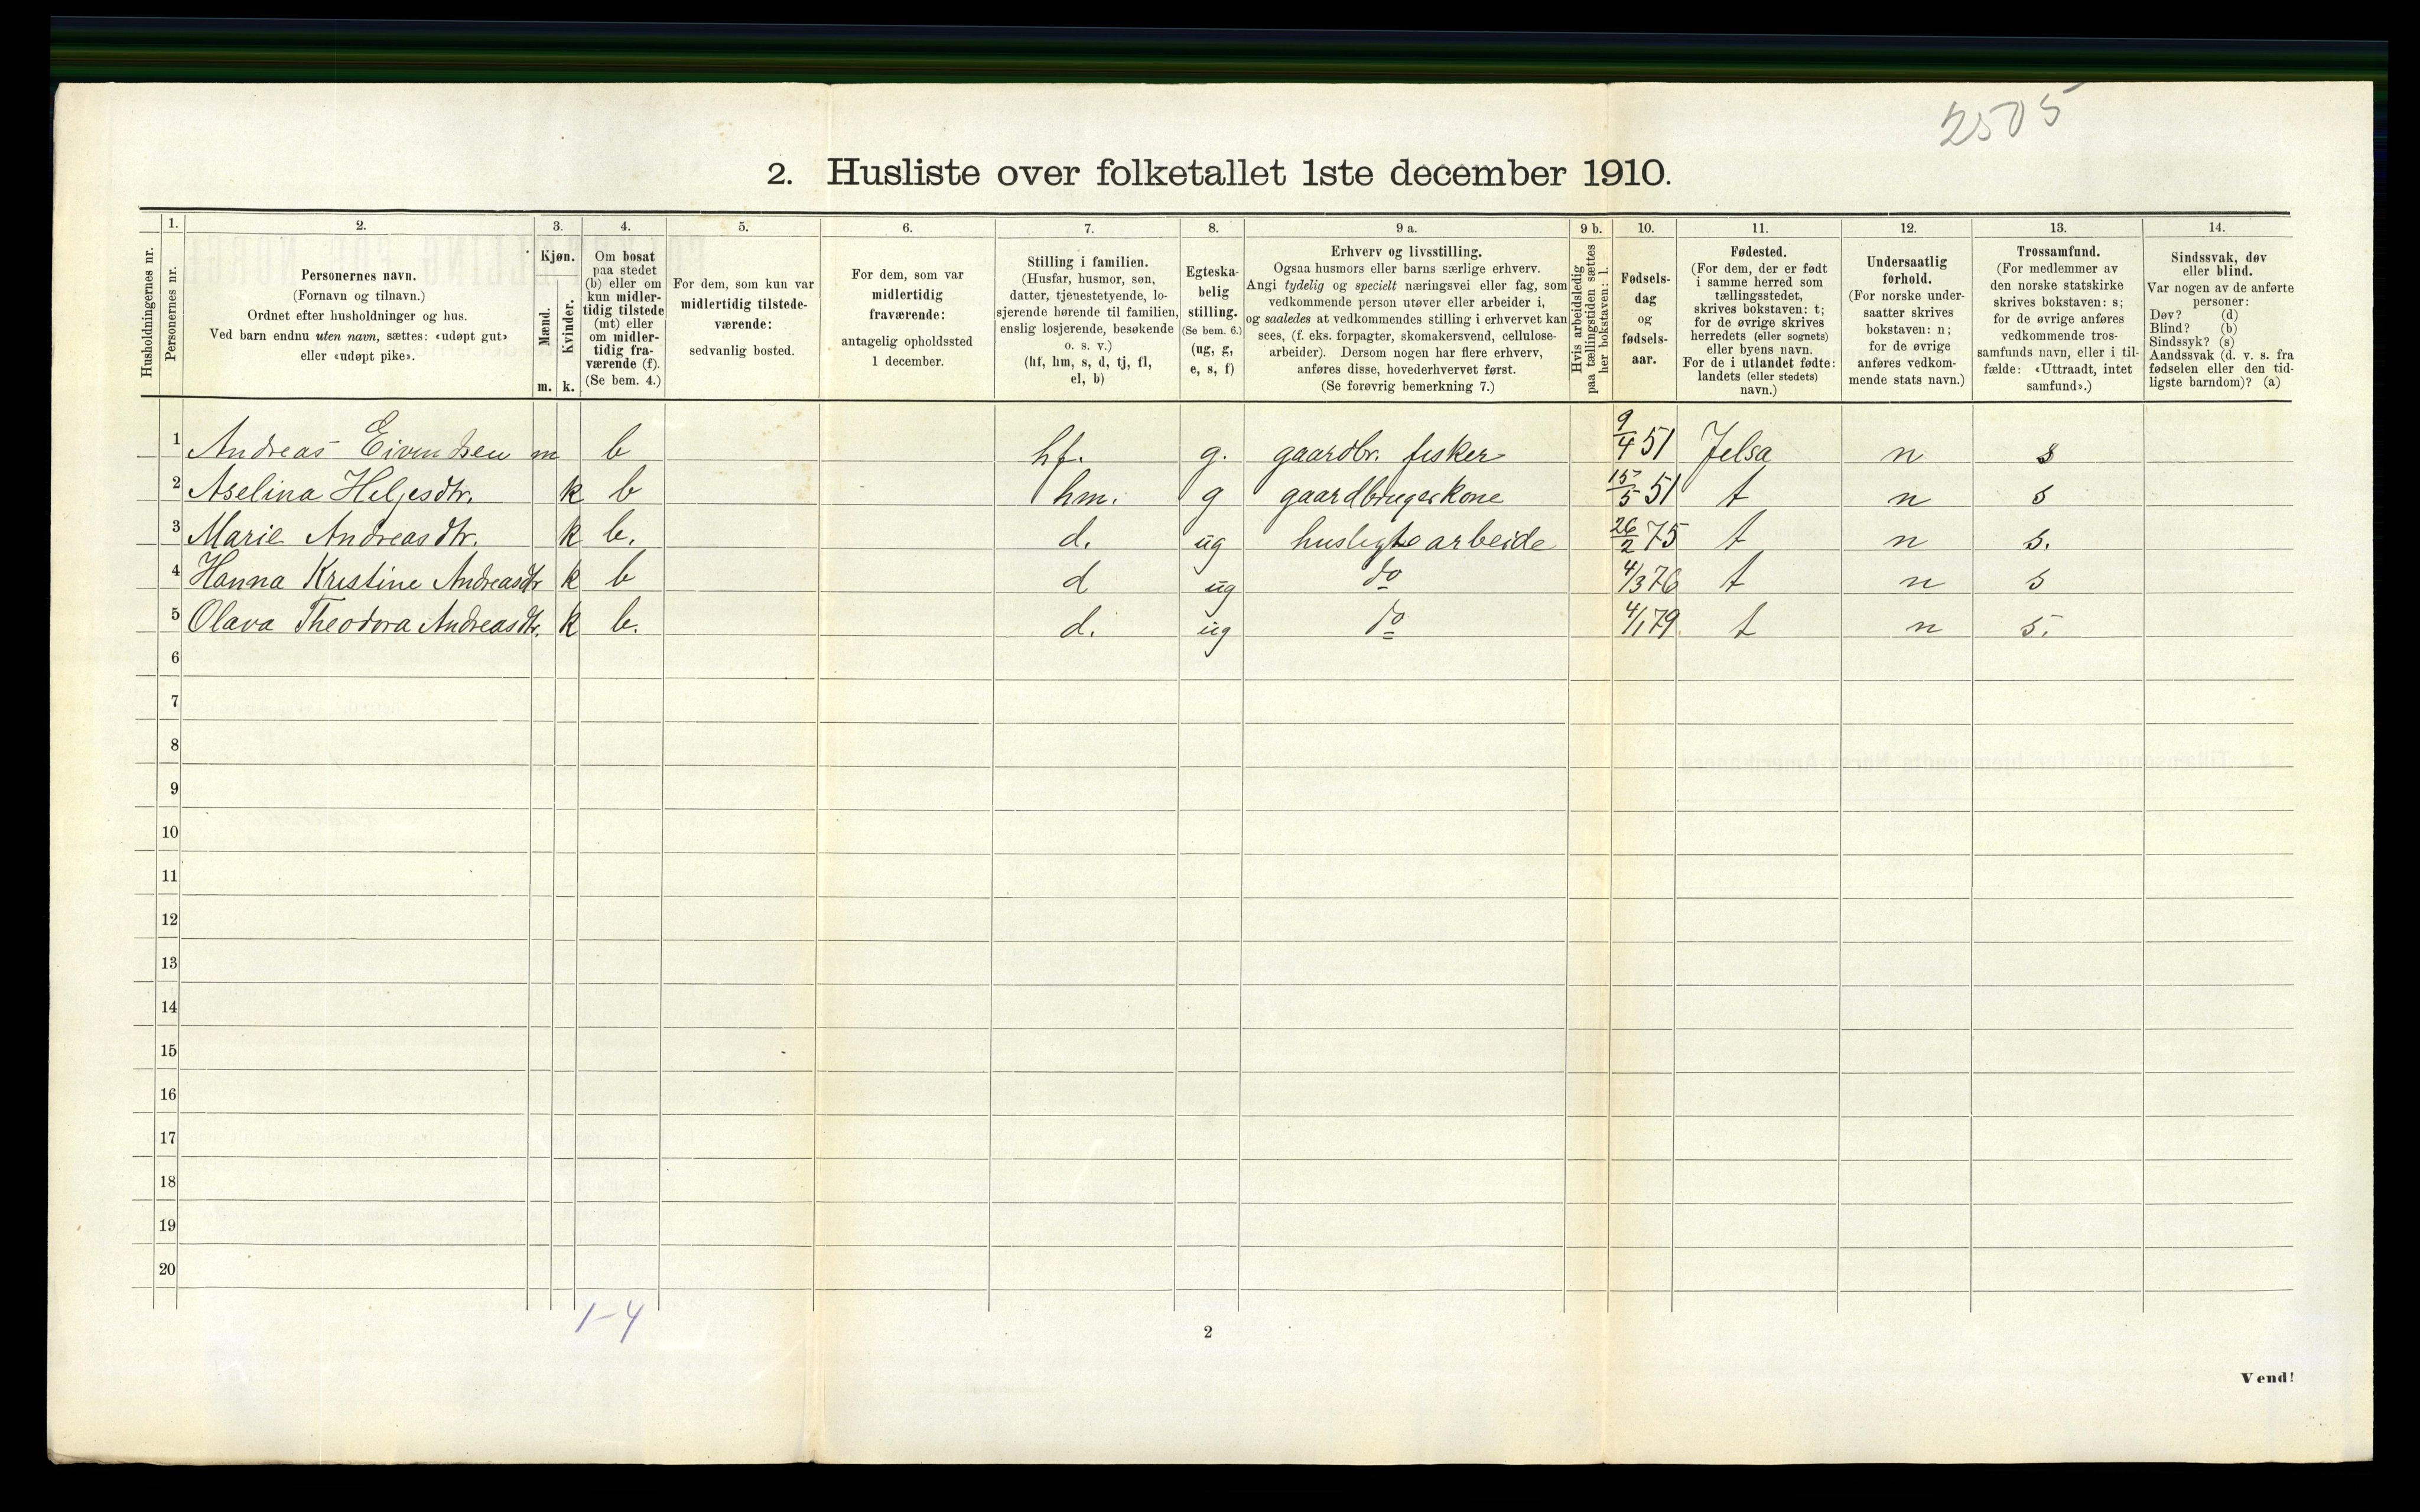 2505
2. Husliste over folketallet 1ste december 1910.
Husholdningernes nr.
1.
Personernes nr.
2.
Personernes navn.
(Fornavn og tilnavn.)
Ordnet efter husholdninger og hus.
Ved barn endnu uten navn, sættes: «udøpt gut»
eller «udøpt pike».
3.
Kjøn.
Mænd.
Kvinder.
m. k.
4.
Om bosat
paa stedet
(b) eller om
kun midler-
tidig tilstede
(mt) eller
om midler-
tidig fra-
værende (f).
(Se bem. 4.)
5.
For dem, som kun var
midlertidig tilstede-
værende:
sedvanlig bosted.
6.
For dem, som var
midlertidig
fraværende:
antagelig opholdssted
1 december.
7.
Stilling i familien.
(Husfar, husmor, søn,
datter, tjenestetyende, lo-
sjerende hørende til familien,
enslig losjerende, besøkende
o. s. v.)
(hf, hm, s, d, tj, fl,
el, b)
8.
Egteska-
belig
stilling.
(Se bem. 6.)
(ug, g,
e, s, f)
9 a.
Erhverv og livsstilling.
Ogsaa husmors eller barns særlige erhverv.
Angi tydelig og specielt næringsvei eller fag, som
vedkommende person utøver eller arbeider i,
og saaledes at vedkommendes stilling i erhvervet kan
sees, (f. eks. forpagter, skomakersvend, cellulose-
arbeider). Dersom nogen har flere erhverv,
anføres disse, hovederhvervet først.
(Se forøvrig bemerkning 7.)
9 b.
Hvis arbeidsledig
paa tællingstiden sættes
her bokstaven: l.
10.
Fødsels-
dag
og
fødsels-
aar.
11.
Fødested.
(For dem, der er født
i samme herred som
tællingsstedet,
skrives bokstaven: t;
for de øvrige skrives
herredets (eller sognets)
eller byens navn.
For de i utlandet fødte:
landets (eller stedets)
navn.)
12.
Undersaatlig
forhold.
(For norske under-
saatter skrives
bokstaven: n;
for de øvrige
anføres vedkom-
mende stats navn.)
13.
Trossamfund.
(For medlemmer av
den norske statskirke
skrives bokstaven: s;
for de øvrige anføres
vedkommende tros-
samfunds navn, eller i til-
fælde: «Uttraadt, intet
samfund».)
14.
Sindssvak, døv
eller blind.
Var nogen av de anførte
personer:
Døv? (d)
Blind? (b)
Sindssyk? (s)
Aandssvak (d. v. s. fra
fødselen eller den tid-
ligste barndom)? (a)
1 Andreas Eivindsen m b hf. g. gaardbr. fisker 9/4 51 Jelsa n s
2 Aselina Heljesdtr. k b hm. g gaardbrugerkone 15/5 51 t n s
3 Marie Andreasdtr. k b. d. ug husligte arbeide 26/2 75 t n s.
4 Hanna Kristine Andreasdtr k b d ug do 4/3 76 t n s
5 Olava Theodora Andreasdtr. k b. d. ug do 4/1 79. t n s.
6
7
8
9
10
11
12
13
14
15
16
17
18
19
20
1-4
2
Vend!